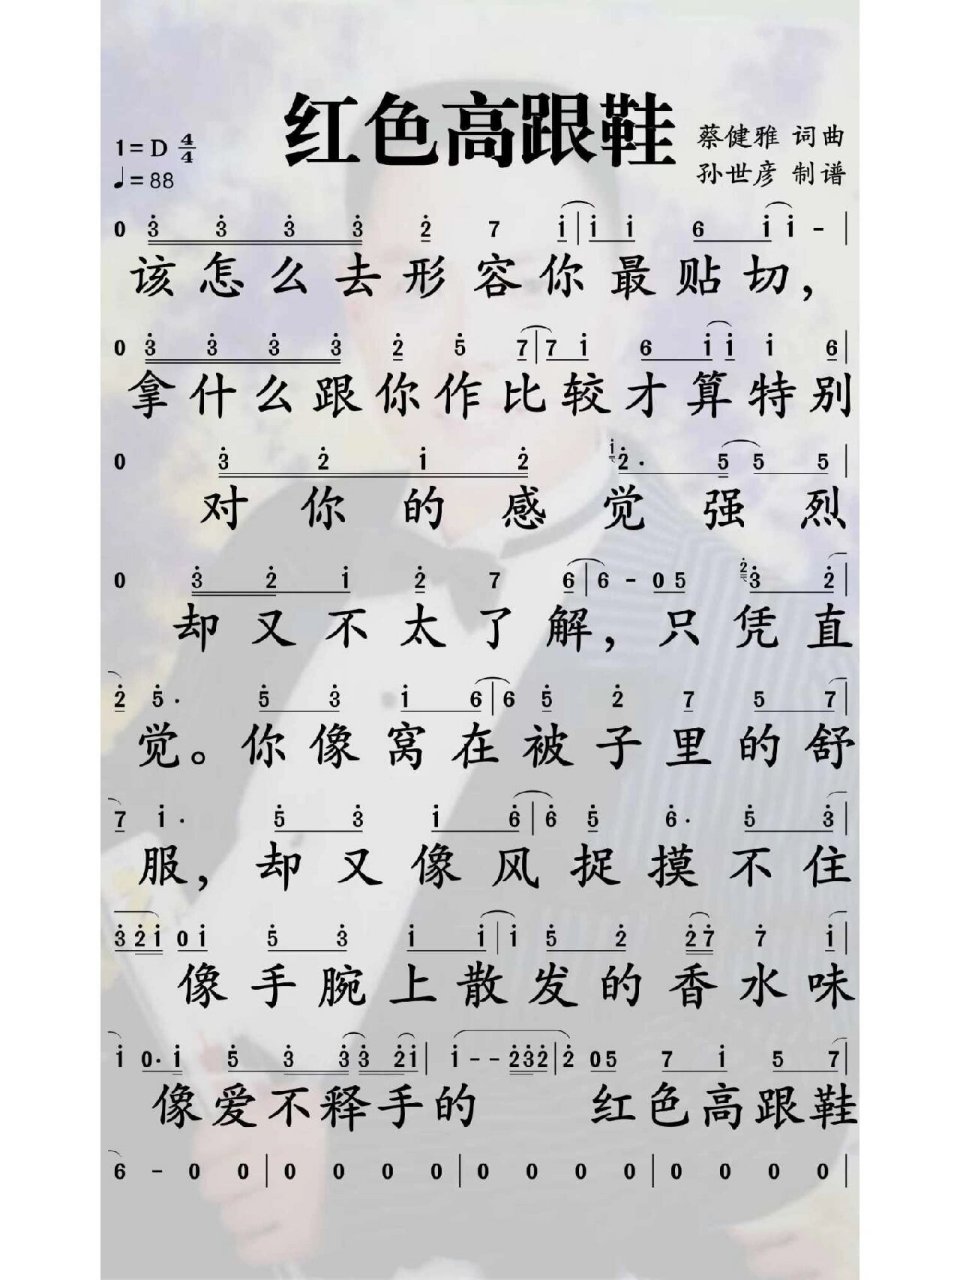 红色高跟鞋
1=D 4/4
♩=88
蔡健雅 词曲
孙世彦 制谱
0 3 3 3 3 2 7 i | i i 6 i i - |
该怎么去形容你最贴切，
0 3 3 3 3 2 5 7 | 7 i 6 i i i 6 |
拿什么跟你作比较才算特别
0 3 2 i 2 i 2· 5 5 5 |
对你的感觉强烈
0 3 2 i 2 7 6 | 6 - 0 5 2 3 2 |
却又不太了解，只凭直
2 5· 5 3 i 6 | 6 5 2 7 5 7 |
觉。你像窝在被子里的舒
7 i· 5 3 i 6 | 6 5 6· 5 3 |
服，却又像风捉摸不住
3 2 i 0 i 5 3 i i | i 5 2 2 7 7 i |
像手腕上散发的香水味
i 0· i 5 3 3 3 2 i | i - - 2 3 2 | 2 0 5 7 i 5 7 |
像爱不释手的 红色高跟鞋
6 - 0 0 | 0 0 0 0 | 0 0 0 0 | 0 0 0 0 |